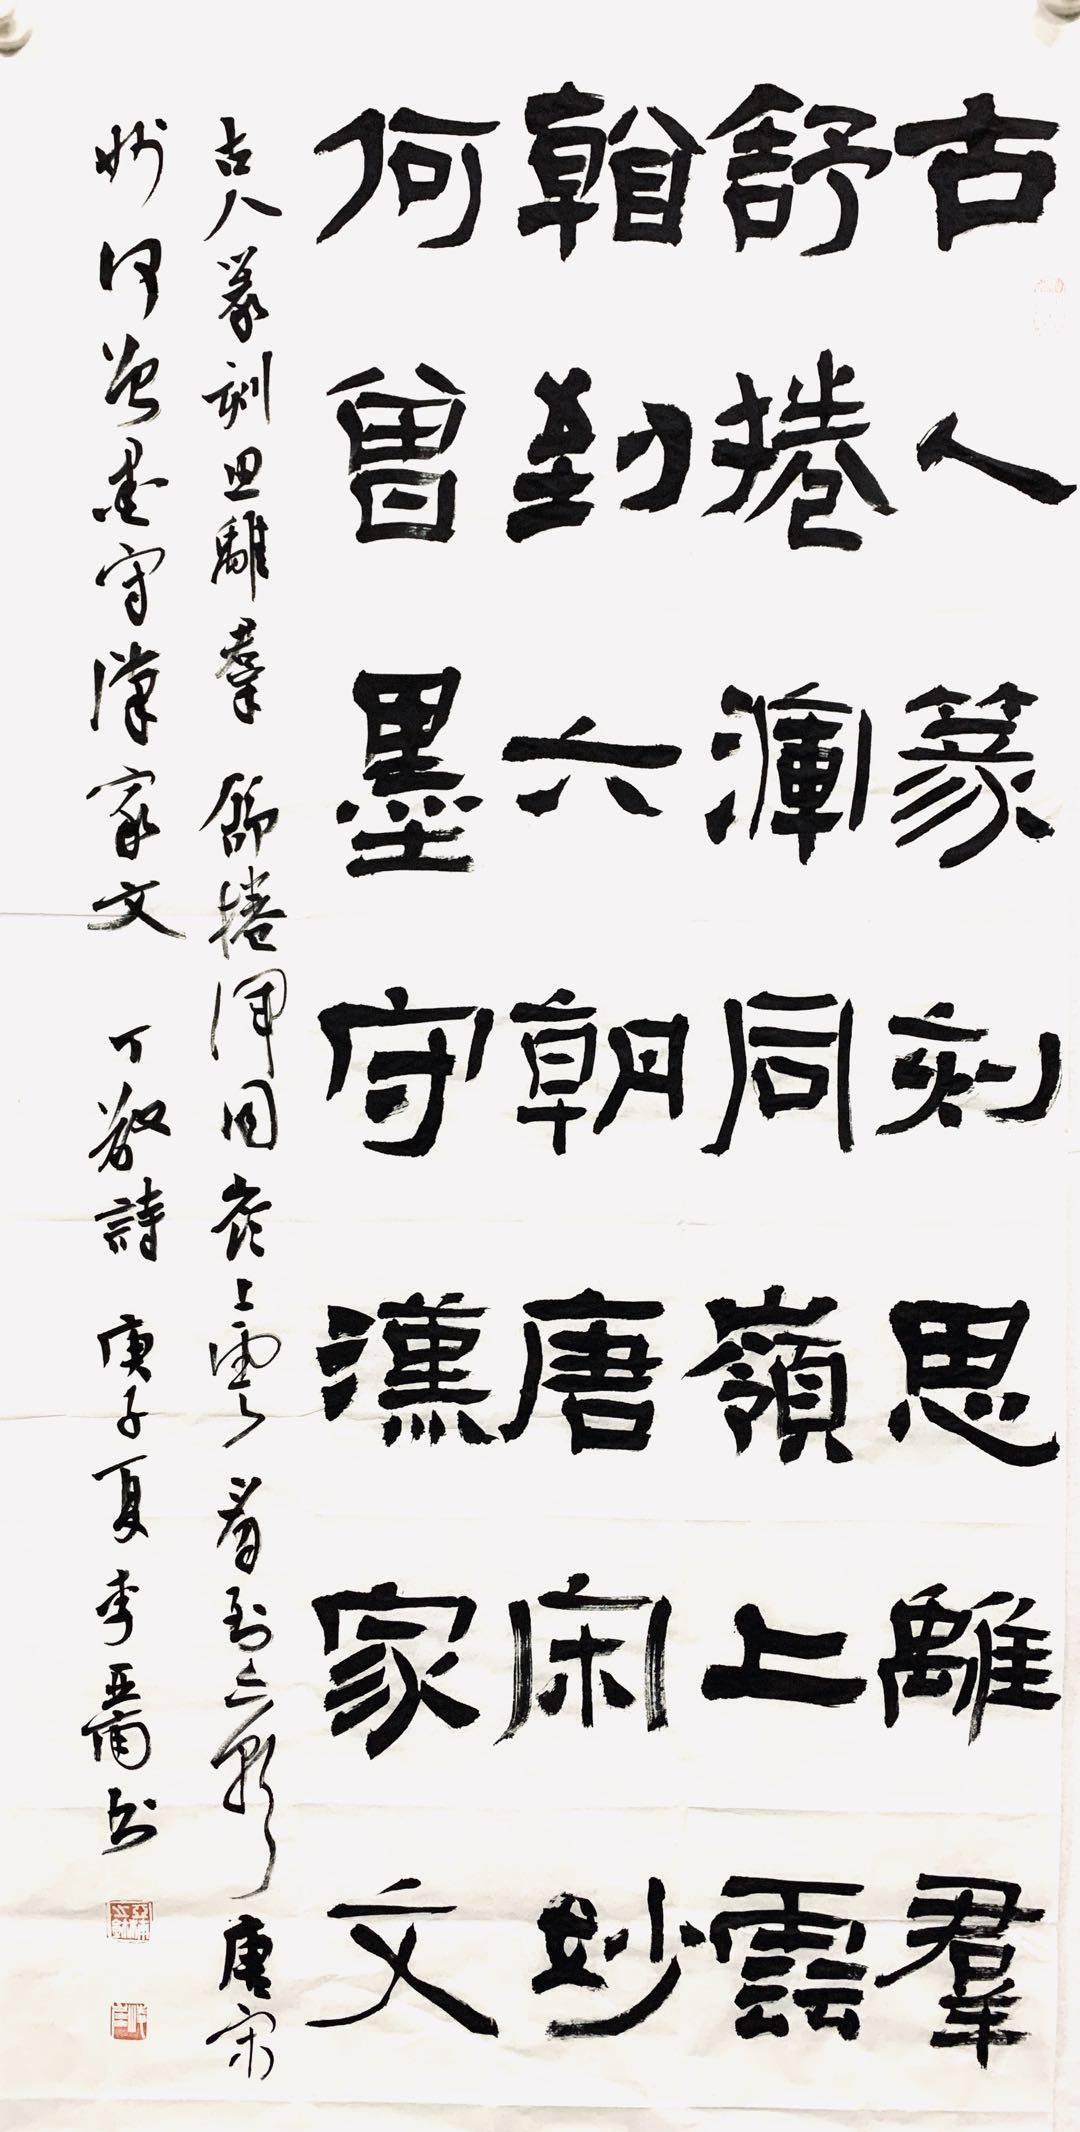 古人篆刻思離羣
舒捲渾同嶺上雲
看到六朝唐宋妙
何曾墨守漢家文
古人篆刻思離羣 舒捲渾同嶺上雲 看到六朝 唐宋
妙何曾墨守漢家文 丁敬詩 庚子夏 李亞 书